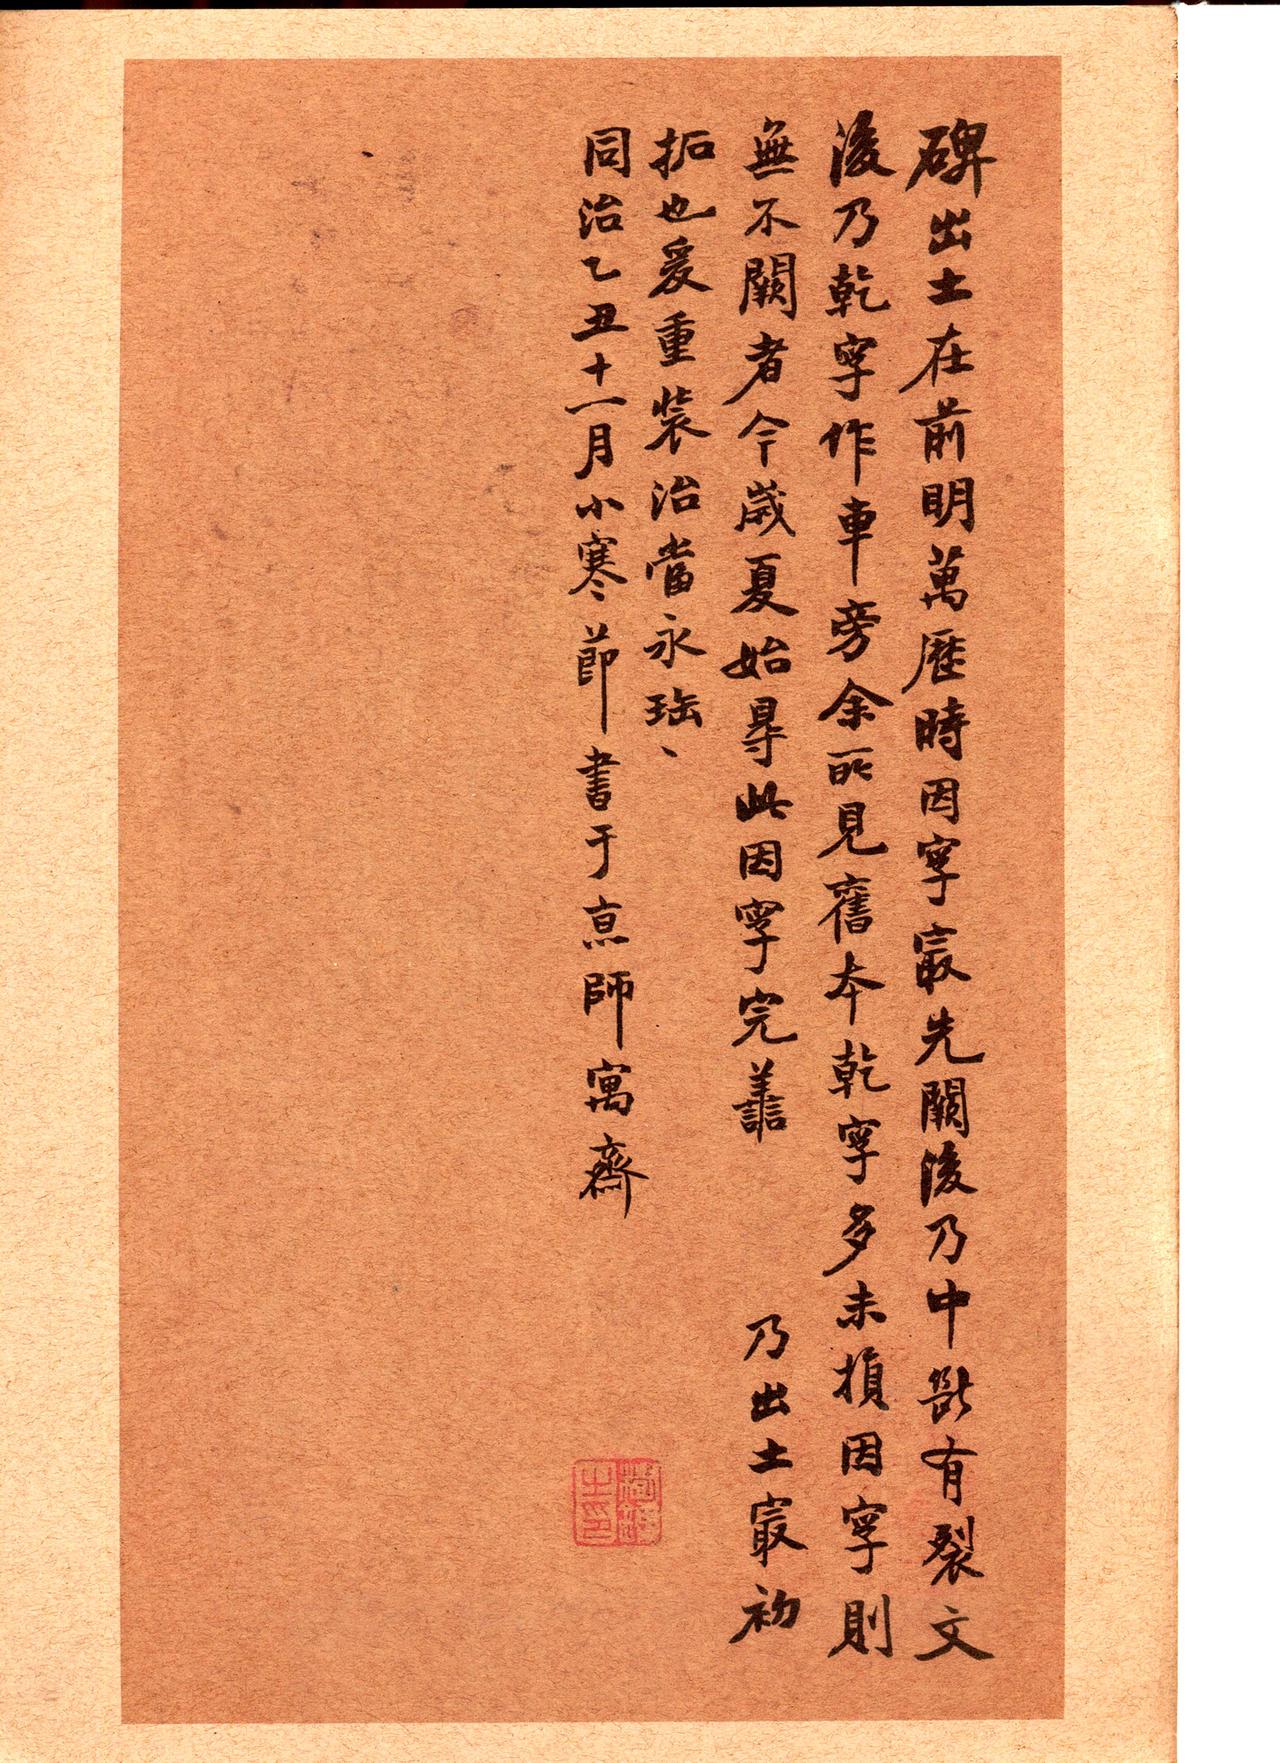 碑出土在前明萬歷時因字㝡先闕後乃中斷有裂文
後乃乾字作車旁余所見舊本乾字多未損因字則
無不闕者今歲夏始尋此因字完譱　乃出土㝡初
拓也爰重裝治當永珤、
同治乙丑十一月小寒節書于京師寓齋
之印